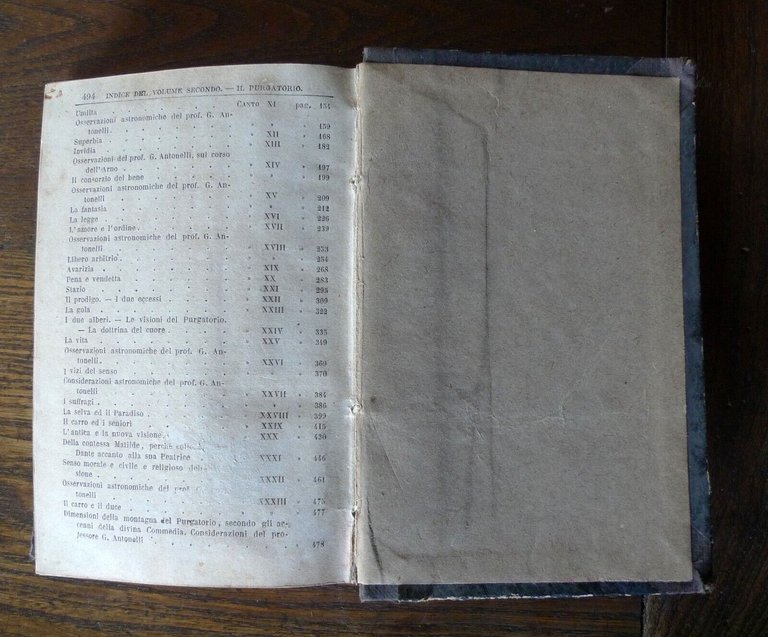 494 INDICE DEL VOLUME SECONDO. — IL PURGATORIO.
Umiltà . . . CANTO XI pag. 154
Osservazioni astronomiche del prof. G. An-
tonelli. . . . » 159
Superbia . . . » XII » 168
Invidia . . . » XIII » 182
Osservazioni del prof. G. Antonelli, sul corso
dell'Arno . . . » 197
Il consorzio del bene . . . » XIV » 199
Osservazioni astronomiche del prof. G. An-
tonelli . . . » 209
La fantasia . . . » XV » 212
La legge . . . » XVI » 226
L'amore e l'ordine . . . » XVII » 239
Osservazioni astronomiche del prof. G. An-
tonelli . . . » 253
Libero arbitrio . . . » XVIII » 254
Avarizia . . . » XIX » 268
Pena e vendetta . . . » XX » 283
Stazio . . . » XXI » 295
Il prodigo. — I due eccessi . . . » XXII » 309
La gola . . . » XXIII » 322
I due alberi. — Le visioni del Purgatorio.
— La dottrina del cuore . . . » XXIV » 335
La vita . . . » XXV » 349
Osservazioni astronomiche del prof. G. An-
tonelli. . . . » 369
I vizi del senso . . . » XXVI » 370
Considerazioni astronomiche del prof. G. An-
tonelli . . . » 384
I suffragi . . . » XXVII » 386
La selva ed il Paradiso . . . » XXVIII » 399
Il carro ed i seniori . . . » XXIX » 415
L'antica e la nuova visione. . . . » XXX » 430
Della contessa Matilde, perchè
Dante accanto alla sua Beatrice . . . » XXXI » 446
Senso morale e civile e religioso
sione . . . » XXXII » 461
Osservazioni astronomiche del prof. G. An-
tonelli . . . » 475
Il carro e il duce . . . » XXXIII » 477
Dimensioni della montagna del Purgatorio, secondo gli ac-
cenni della divina Commedia, Considerazioni del pro-
fessore G. Antonelli . . . » 478